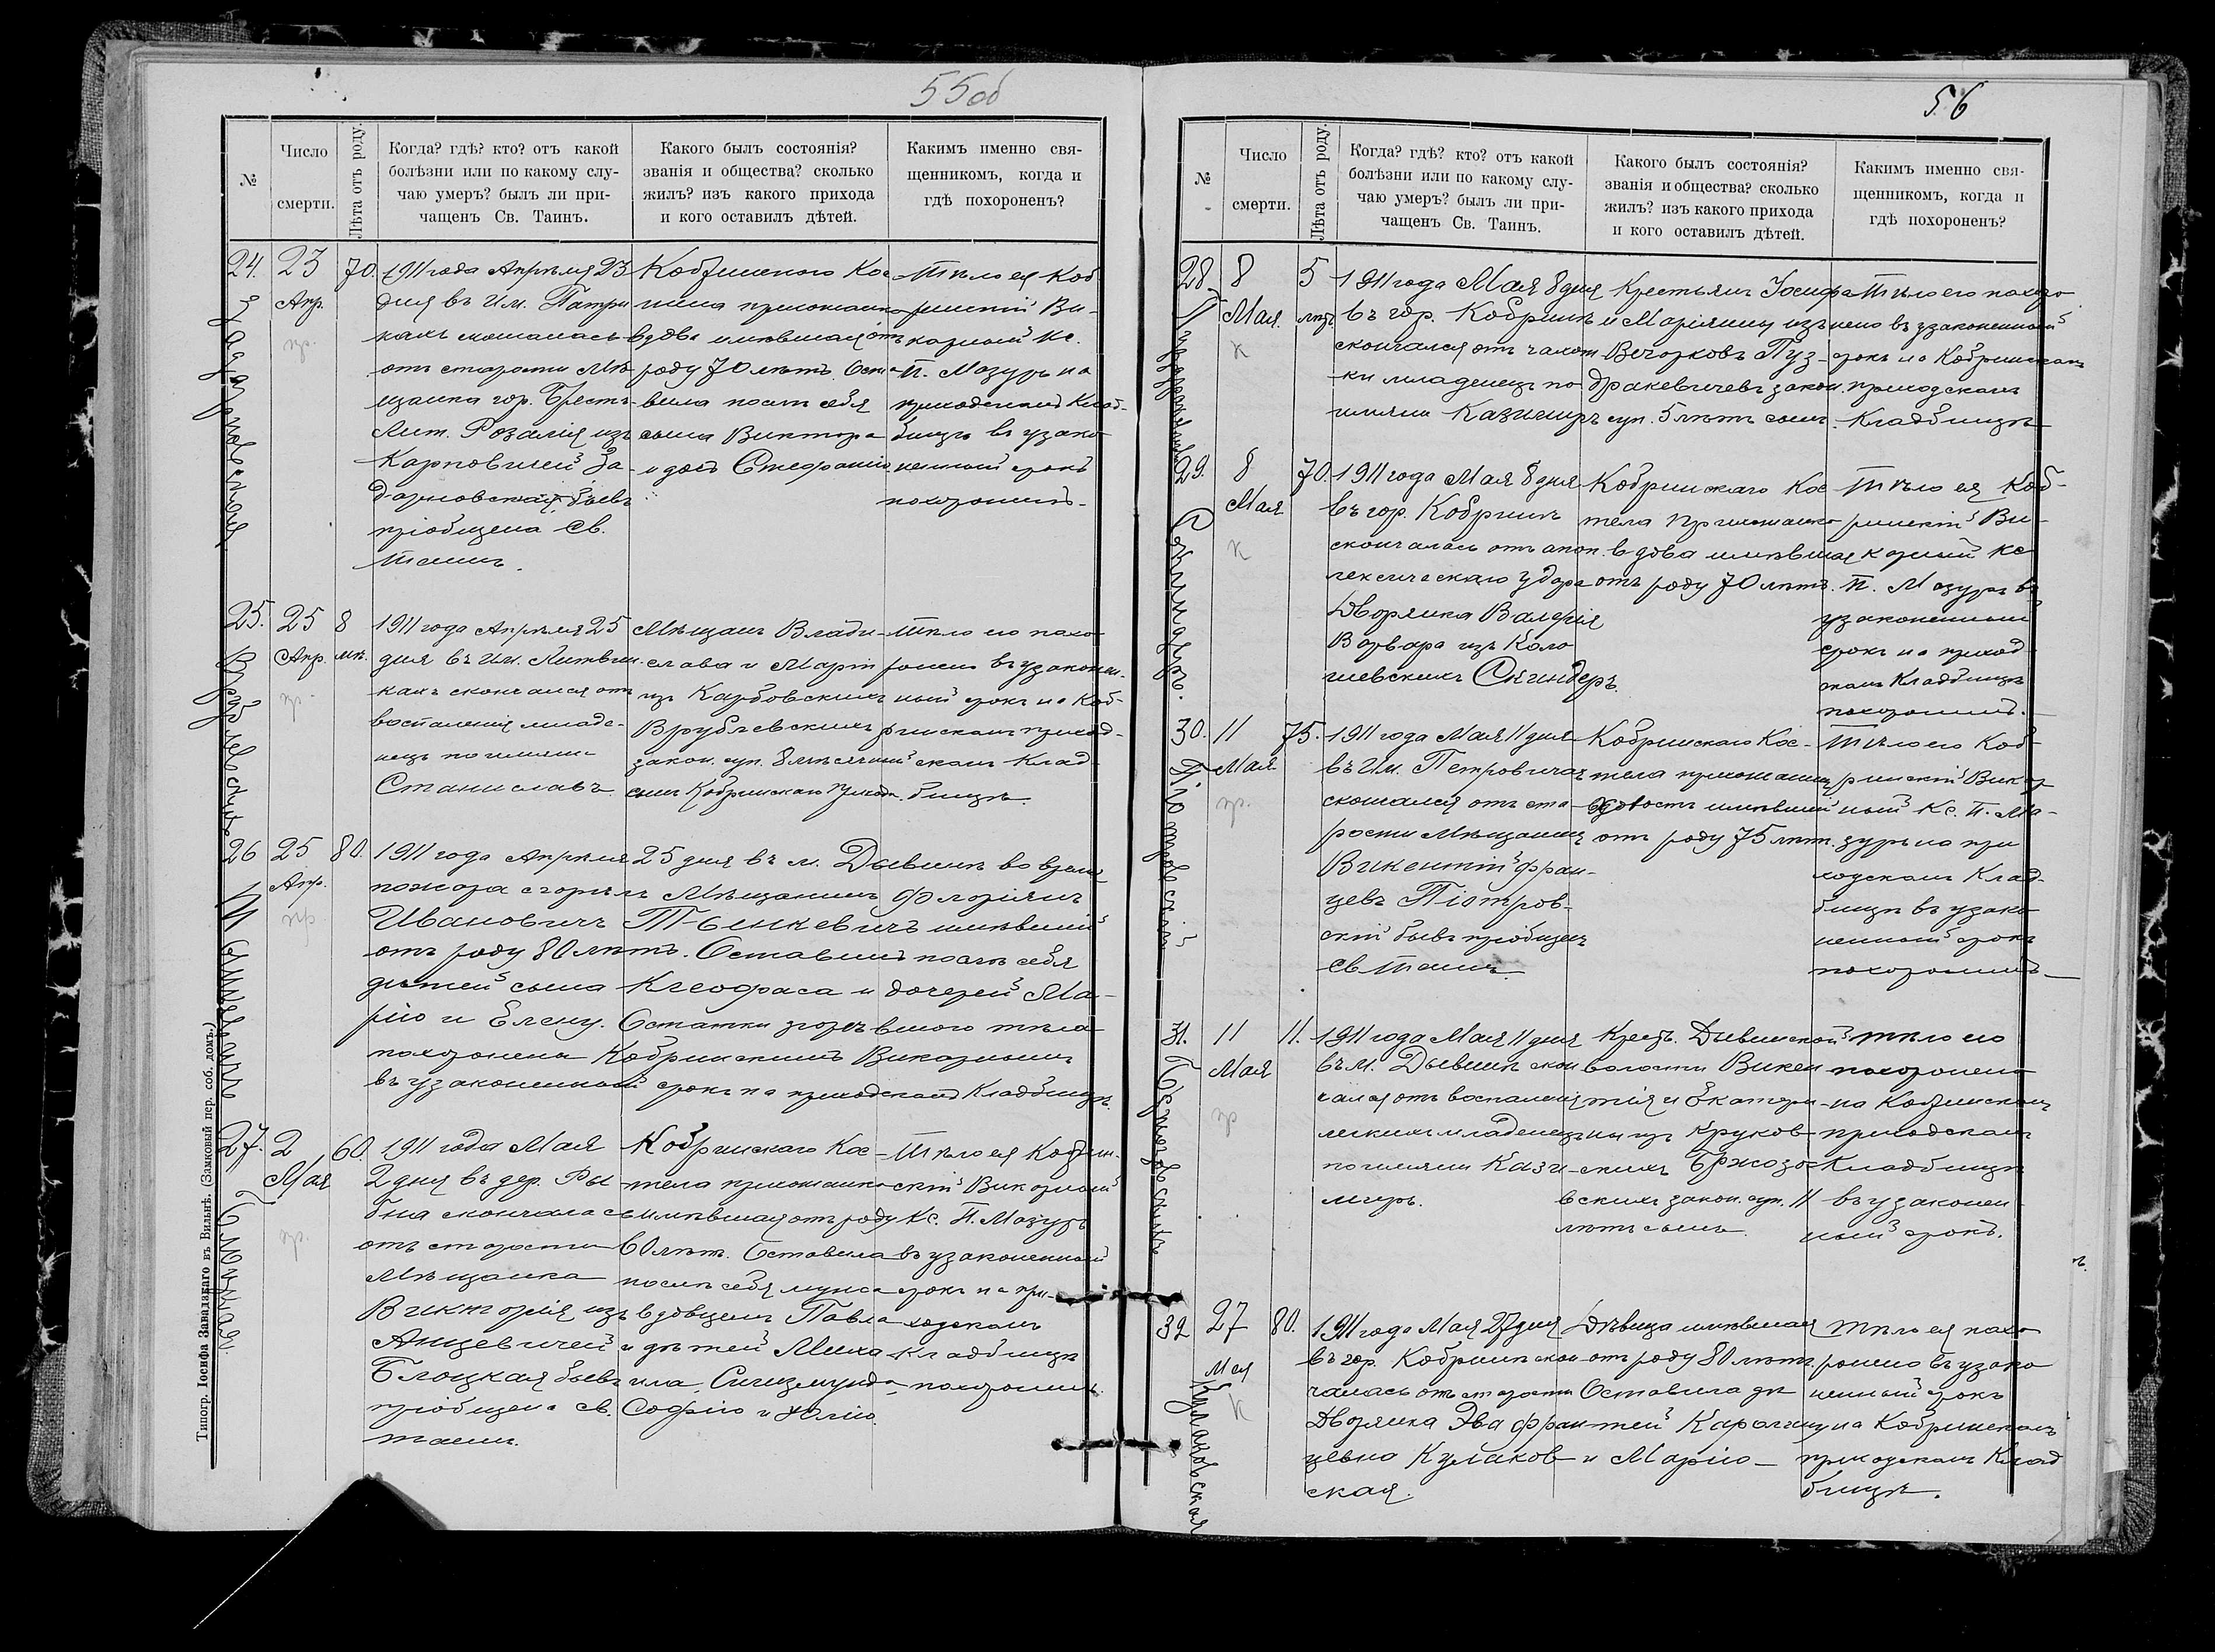 55об
№
Число
смерти.
Лѣта отъ роду.
Когда? гдѣ? кто? отъ какой
болѣзни или по какому слу-
чаю умеръ? былъ ли при-
чащенъ Св. Таинъ.
Какого былъ состоянія?
званія и общества? сколько
жилъ? изъ какого прихода
и кого оставилъ дѣтей.
Какимъ именно свя-
щенникомъ, когда и
гдѣ похороненъ?
24.
23
Апр.
пр.
70.
1911 года Апрѣля 23
дня въ Им. Патри
кахъ скончалась
отъ старости Мѣ-
щанка гор. Брест-
Лит. Розалія изъ
Карповичей За-
дарновская, бывъ
пріобщена Св.
Таинъ.
Кобринскаго Кос-
тела прихожанка
вдова имѣвшая отъ
роду 70 лѣтъ. Оста-
вила послѣ себя
сына Виктора
и дочь Стефанію
Тѣло ея Коб
ринскій Ви-
карный Кс.
П. Мазуръ на
приходскомъ Клад-
бищѣ въ узако-
ненный срокъ
похоронилъ.
25.
25
Апр.
пр.
8
мѣ.
1911 года Апрѣля 25
дня въ Им. Литвин-
кахъ скончался отъ
воспаленія младе-
нецъ по имени
Станиславъ.
Мѣщанъ Влади-
слава и Маріи
изъ Карбовскихъ
Врублевскихъ
закон. суп. 8 мѣсячный
сынъ Кобринскаго прихода.
Тѣло его похо
ронено въ узаконен-
ный срокъ на Коб-
ринскомъ приход-
скомъ Клад-
бищѣ.
Врублевскій
26
25
Апр.
пр
80.
1911 года Апрѣля 25 дня въ м. Дывинѣ во время
пожара сгорѣлъ Мѣщанинъ Флоріянъ
Ивановичъ имѣвшій
отъ роду 80 лѣтъ. Оставилъ послѣ себя
дѣтей сына Клеофаса и дочерей Ма-
рію и Елену. Остатки згорѣвшаго тѣла
похоронены Кобринскимъ Викарнымъ
въ узаконенный срокъ на приходскомъ Кладбищѣ.
27.
2
Мая
пр.
60.
1911 года Мая
2 дня въ дер. Ры
бна скончалась
отъ старости
Мѣщанка
Викторія изъ
Анцевичей
Блоцкая бывъ
пріобщена св.
таинъ.
Кобринскаго Кос-
тела прихожанка
имѣвшая отъ роду
60 лѣтъ. Оставила
послѣ себя мужа
вдовцемъ Павла
и дѣтей Миха
ила, Сигизмунда,
Софію и Юлію.
Тѣло ея Кобрин-
скій Викарный
Кс. П. Мазуръ
въ узаконенный
срокъ на при-
ходскомъ
Кладбищѣ
похоронилъ.
Типогр. Іосифа Завадзкаго въ Вильнѣ. (Замковый пер. соб. домъ.)
56
№
Число
смерти.
Лѣта отъ роду.
Когда? гдѣ? кто? отъ какой
болѣзни или по какому слу-
чаю умеръ? былъ ли при-
чащенъ Св. Таинъ.
Какого былъ состоянія?
званія и общества? сколько
жилъ? изъ какого прихода
и кого оставилъ дѣтей.
Какимъ именно свя-
щенникомъ, когда и
гдѣ похороненъ?
28.
8
Мая.
к
5
лѣтъ
1911 года Мая 8 дня
въ гор. Кобринѣ
скончался отъ чахот
ки младенецъ по
имени Казимиръ
Крестьянъ Іосифа
и Маріянны изъ
Вечорковъ Пуз-
дракевичевъ закон.
суп. 5 лѣтъ сынъ.
Тѣло его похоро
нено въ узаконенный
срокъ на Кобринскомъ
приходскомъ
Кладбищѣ
29.
8
Мая
к
70.
1911 года Мая 8 дня
въ гор. Кобринѣ
скончалась отъ апоп-
лексическаго удара
Дворянка Валерія
Варвара изъ Коло
гиевскихъ Скиндеръ.
Кобринскаго Кос
тела прихожанка
вдова имѣвшая
отъ роду 70 лѣтъ.
Тѣло ея Коб-
ринскій Ви-
карный Кс
П. Мазуръ въ
узаконенный
срокъ на приход
скомъ Кладбищѣ
похоронилъ.
Скиндеръ.
30.
11
Мая
пр.
75.
1911 года Мая 11 дня
въ Им. Петровичахъ
скончался отъ ста-
рости Мѣщанинъ
Викентій Фран-
цевъ Піотров-
скій бывъ пріобщенъ
св. таинъ.
Кобринскаго Кос-
тела прихожанинъ
имѣвшій
отъ роду 75 лѣтъ.
Тѣло его Коб
ринскій Викар
ный Кс. П. Ма-
зуръ на при
ходскомъ Клад-
бищѣ въ узако
ненный срокъ
похоронилъ
Піотровскій
31.
11
Мая
пр
11.
1911 года Мая 11 дня
въ м. Дывинѣ скон
чался отъ воспаленія
легкихъ младенецъ
по имени Кази-
миръ.
Крест. Дывинской
волости Викен
тія и Екатери-
ны изъ Круков-
скихъ Бржозо-
вскихъ закон. суп. 11
лѣтъ сынъ.
Тѣло его
похоронено
на Кобринскомъ
приходскомъ
Кладбищѣ
въ узаконен
ный срокъ.
32
27
Мая
к
80.
1911 года Мая 27 дня
въ гор. Кобринѣ скон
чалась отъ старости
Дворянка Эва Фран
цевна Кулаков
ская.
Дѣвица имѣвшая
отъ роду 80 лѣтъ.
Оставила дѣ
тей Каролину
и Марію
Тѣло ея похо
ронено въ узако
ненный срокъ
на Кобринскомъ
приходскомъ Клад
бищѣ.
Кулаковская